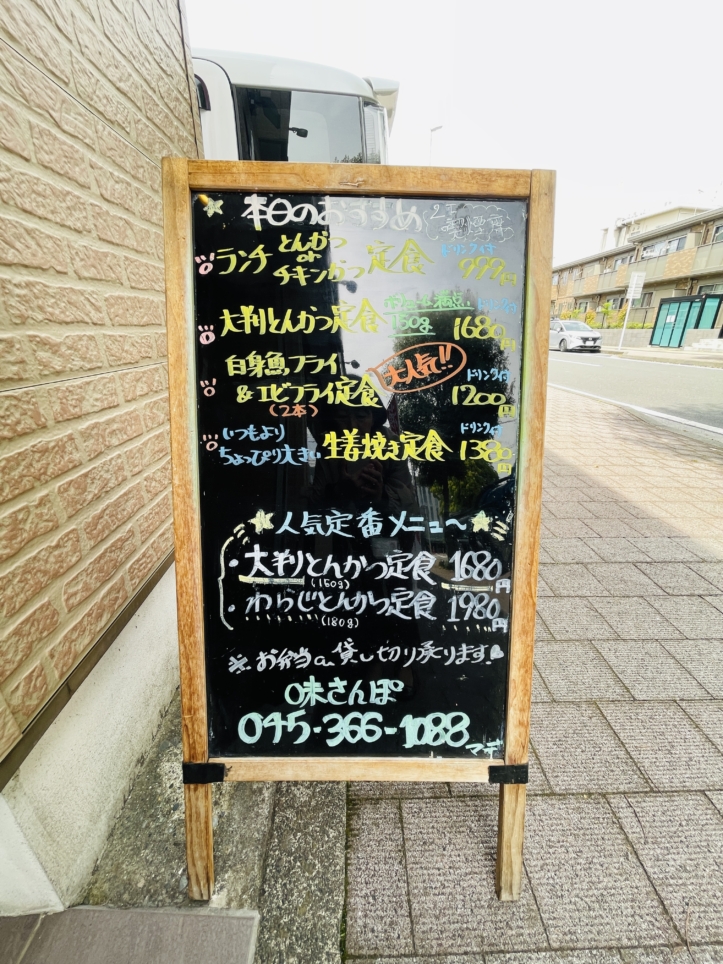 本日のおすすめ
ランチ とんかつ or チキンかつ 定食 ドリンク付 999円
大判とんかつ定食 150g ボリューム満点 ドリンク付 1680円
白身魚フライ
&エビフライ定食 大人気!! ドリンク付 1200円
(2本)
いつもより
ちょっぴり大きい 生姜焼き定食 ドリンク付 1380円
人気定番メニュ〜
・大判とんかつ定食 1680円
(150g)
・わらじとんかつ定食 1980円
(180g)
※お弁当 貸し切り承ります!
味さんぽ
045-366-1088
マデ